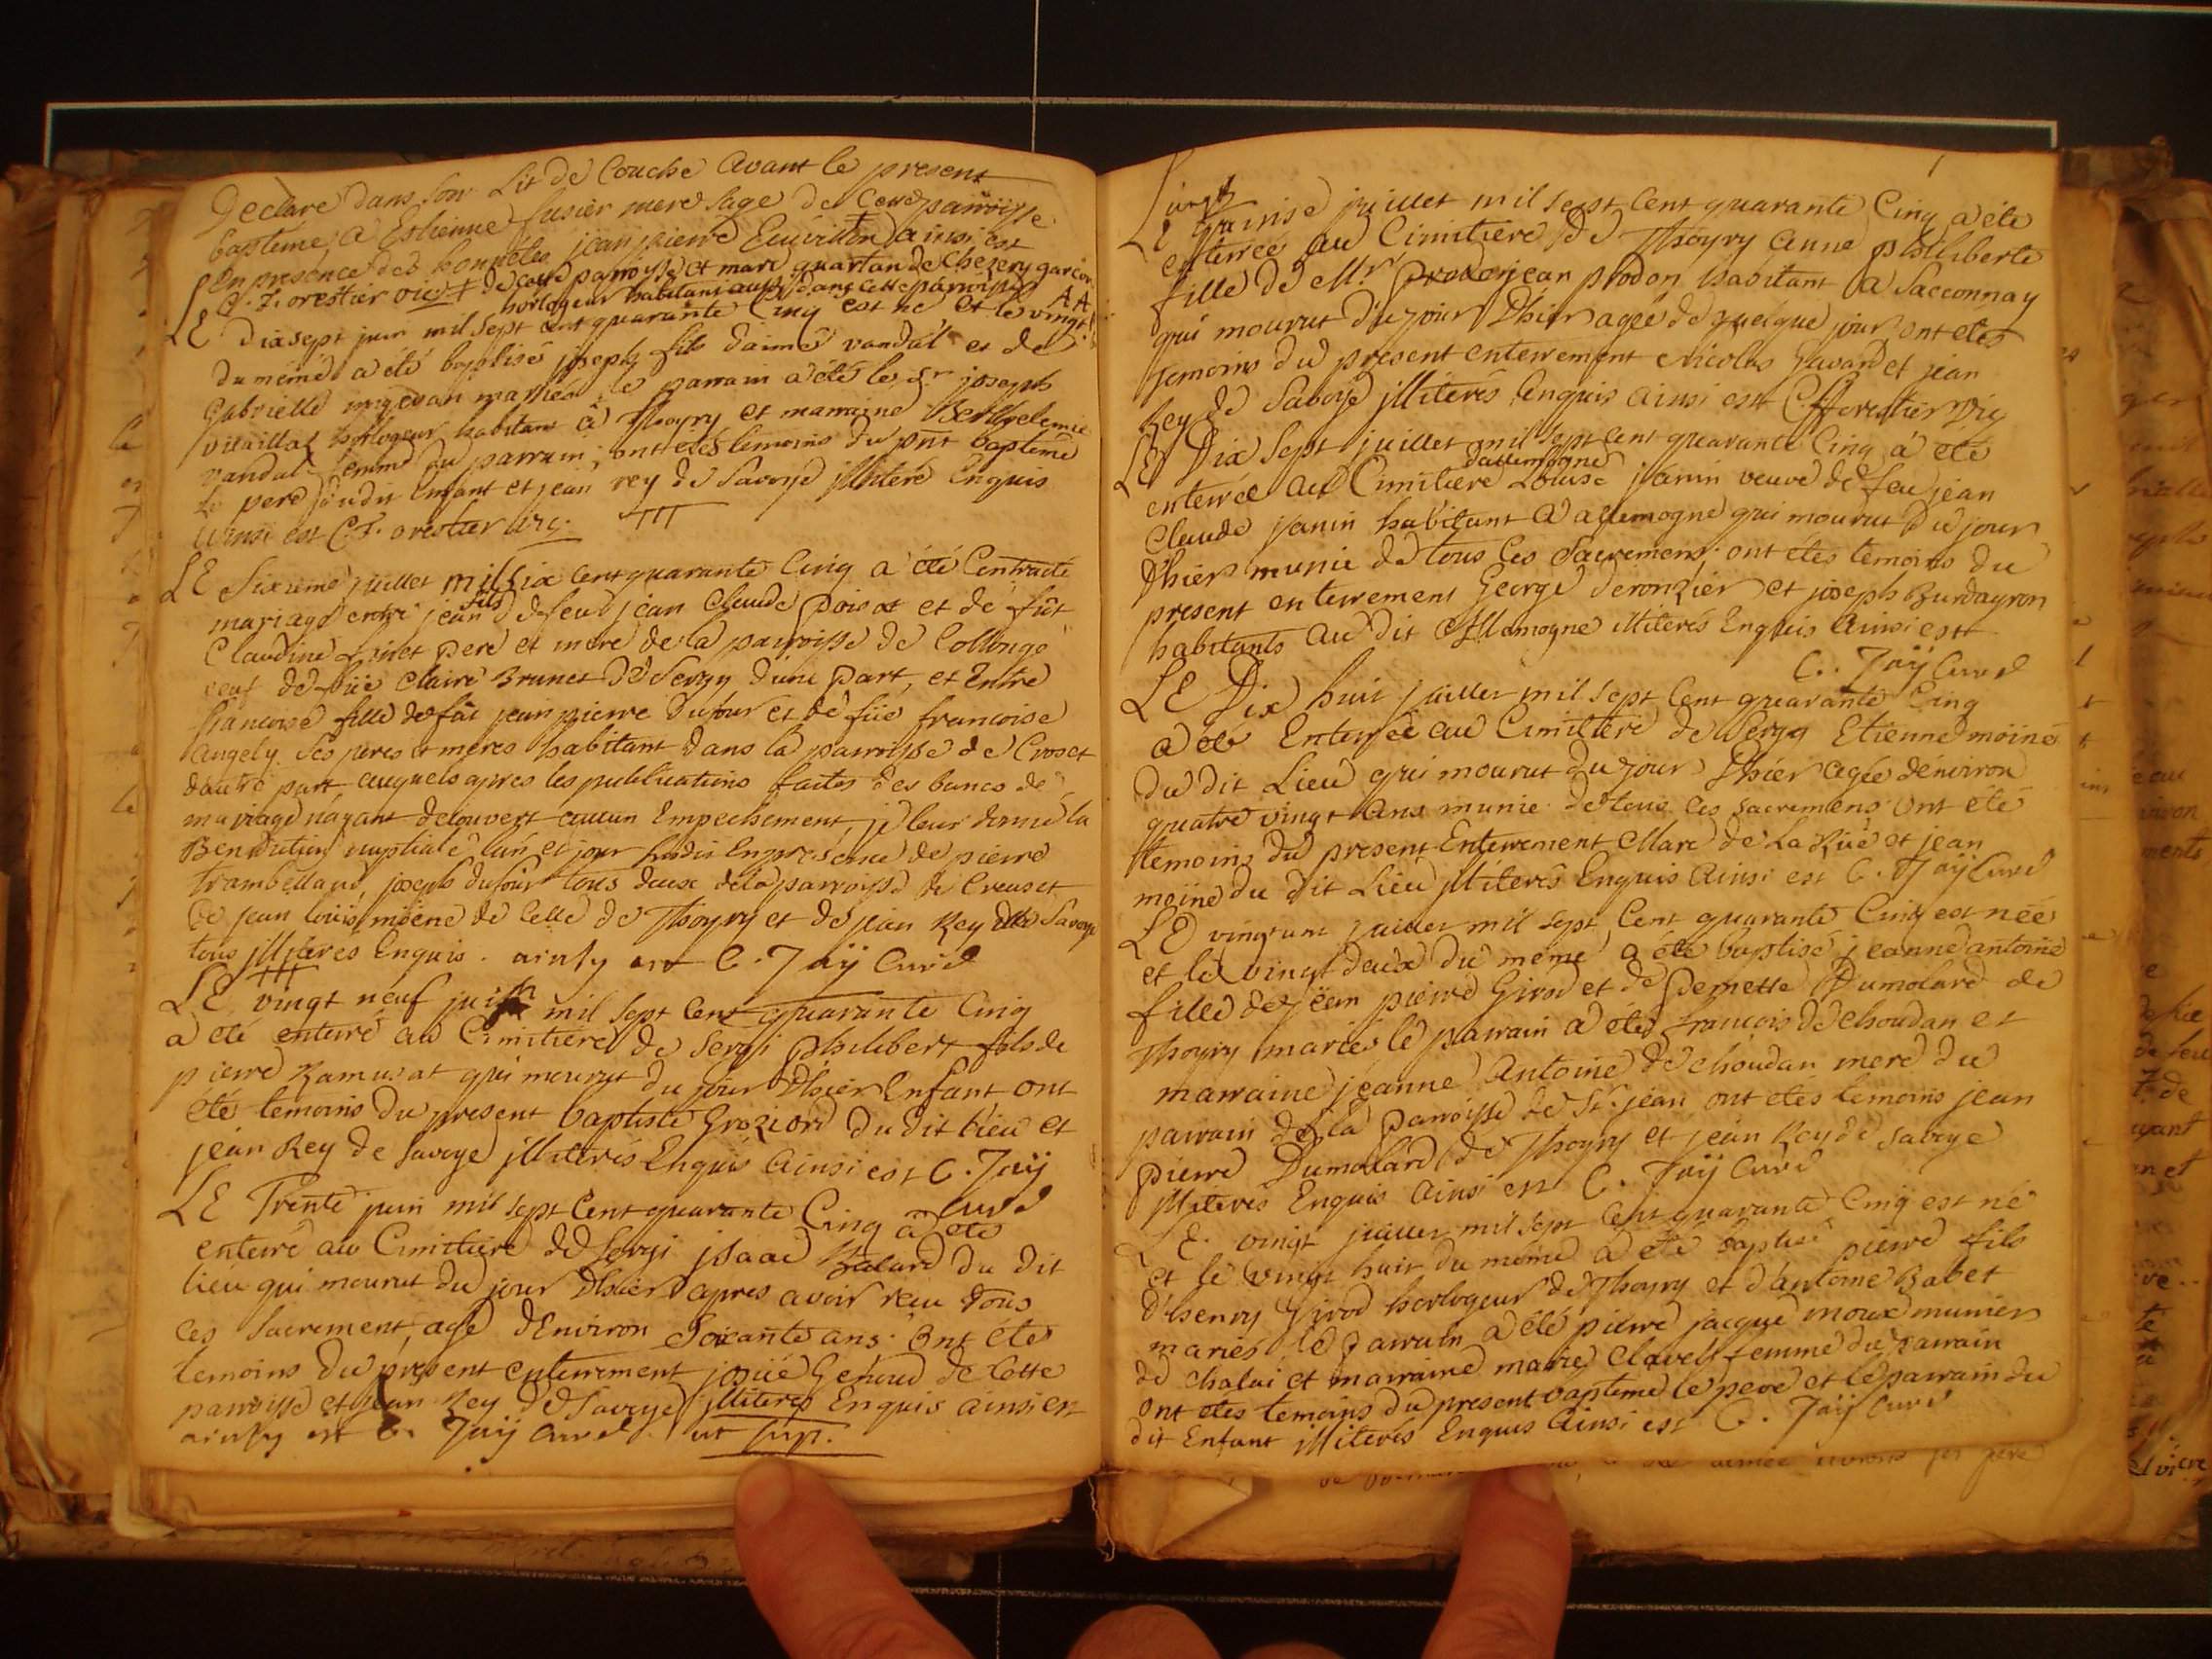 Declare dans son Lit de Couche avant le present
baptême, a Estienne fusier mere sage de Cette parroisse
En presence des honnêtes jean pierre ainsi est
C. F. orestier vic de cette parroisse et marc quartan de Chezery garçon
horlogeur habitant aussi dans cette parroisse AA
LE Dix sept juin mil sept cent quarante Cinq est né et le vingt
du même a été baptisé joseph fils daimé vandal et de
Gabrielle mariés le parrain a été le Sr joseph
vuaillat horlogeur habitant à Thoyry et marraine Berthelemie
vandal femme du parrain, ont etés temoins du pnt baptême
le pere dudit Enfant et jean rey de Savoye illiteré Enquis
ainsi est C. F. orestier vic.
LE Sixieme juillet mil six cent quarante Cinq a été Contracté
mariage entre jean fils de feu jean Claude poisat et de fût
Claudine pere et mere de la parroisse de Collonge
veuf de fûe Claire Brunet De Sergy dune part, et Entre
francoise fille de fût jean pierre Dufour et de fûe francoise
Angely ses peres et meres habitant dans la parroisse de Croset
dautre part auquels apres les publications faites des bancs de
mariage nayant decouvert aucun Empechement, je leur donné la
Benediction nuptiale l'an et jour susdit En presence de pierre
trambelland, joseph dufour tous deux de la parroisse de Creuset
de jean louis moëne de Celle de Thoyry et de jean Rey de Savoye
tous illiteres Enquis. ainsy est C. Jaÿ Curé
LE vingt neuf juin mil sept Cent quarante Cinq
a été enterré au Cimitiere de Sergi philibert fils de
pierre Ramusat qui mourut du jour Dhier Enfant ont
etés temoins du present baptiste Groziord du dit Lieu et
jean Rey de Savoye illiterés Enquis Ainsi est C. Jaÿ
Curé
LE Trente juin mil sept Cent quarante Cinq a été
enterré au Cimitiere de Sergi jsaac Balard du dit
lieu qui mourut du jour Dhier apres avoir reçu Tous
les Sacrement, agé dEnviron Soixante ans. Ont étés
temoins du present enterrement josüé Genoud de Cette
parroisse et jean Rey De Savoye illiteres Enquis ainsi est
ainsy est C. Jaÿ Curé ut sup.
LE juillet mil sept Cent quarante Cinq a été
enterrée au Cimitiere de Thoyry anne philiberte
fille de Mr jean prodon habitant a Sacconnay
qui mourut du jour Dhier agée de quelque jour ont etés
temoins du present enterrement Nicolas Gavard et jean
Rey de Savoye illiterés Enquis ainsi est C. Forestier Vic
LE Dix Sept juillet mil sept cent quarante Cinq a été
enterrée au Cimitiere dallemogne Louise janin veuve de feu jean
Claude janin habitant a allemogne qui mourut du jour
Dhier munie de tous les Sacrement, ont etés temoins du
present enterrement George deronzier et joseph Burdayron
habitants au dit Allemogne illiterés Enquis Ainsi est
C. Jaÿ Curé
LE Dix huit juillet mil sept Cent quarante Cinq
a été Enterrée au Cimitiere de Sergy Etienne moine
du dit Lieu qui mourut du jour Dhier agée denviron
quatre vingt ans munie de tous les sacremens ont été
temoins du present Enterrement Marc de La Rüe et jean
moine du dit Lieu illiterés Enquis Ainsi est C. Jaÿ Curé
LE vingt un juillet mil sept Cent quarante Cinq est née
et le vingt deux du meme a été baptisé jeanne antoine
fille de jean pierre Girod et de pernette Dumolard de
Thoyry mariés le parrain a été francois dechoudan et
marraine jeanne Antoine dechoudan mere du
parrain de la parroisse de St. jean ont etés temoins jean
pierre Dumolard de Thoyry et jean Rey de Savoye
illiterés Enquis Ainsi est C. Jaÿ Curé
LE. vingt juillet mil sept Cent quarante Cinq est né
et le vingt huit du même a été baptisé pierre fils
dhenry Girod horlogeur de Thoyry et d'antoine Babet
mariés le parrain a été pierre jacque moux munier
de chalai et marraine marie Clavel femme du parrain
ont etés temoins du present baptême le pere et le parrain du
dit Enfant illiterés Enquis Ainsi est C. Jaÿ Curé